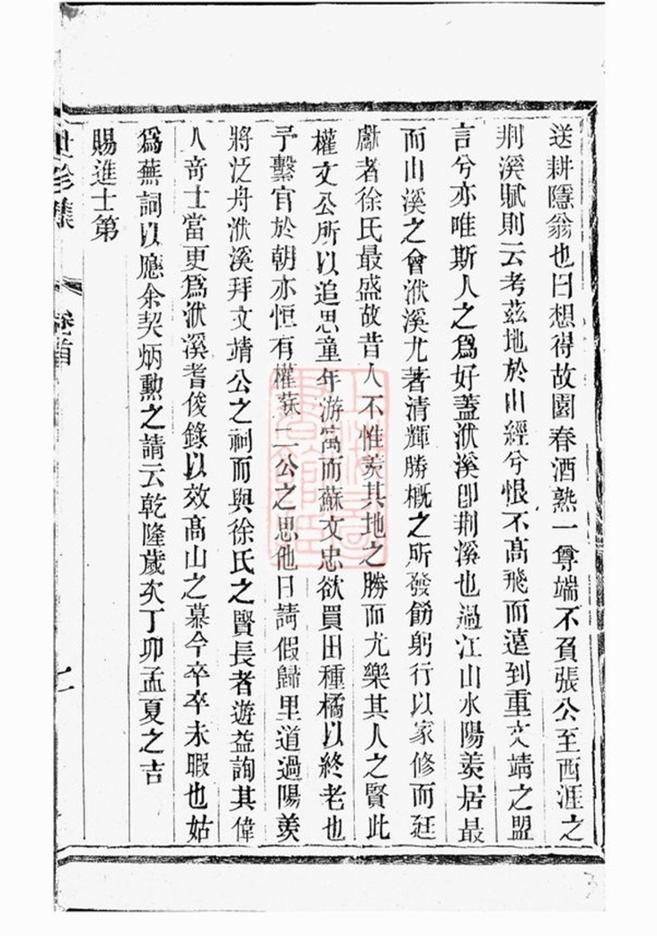 送耕隱翁也曰想得故園春酒熟一尊端不負張公至西涯之
荆溪賦則云考茲地於山經兮恨不高飛而遠到重文靖之盟
言兮亦唯斯人之爲好蓋洑溪卽荆溪也過江山水陽羨居最
而山溪之會洑溪尤著清輝勝概之所發篤躬行以家修而廷
獻者徐氏最盛故昔人不惟羨其地之勝而尤樂其人之賢此
權文公所以追思童年游寓而蘇文忠欲買田種橘以終老也
予繫官於朝亦恒有權蘇二公之思他日請假歸里道過陽羨
將泛舟洑溪拜文靖公之祠而與徐氏之賢長者遊益詢其偉
人奇士當更爲洑溪耆俊錄以效高山之慕今卒卒未暇也姑
爲蕪詞以應余契炳勲之請云乾隆歲次丁卯孟夏之吉
賜進士第
世珍集 卷首